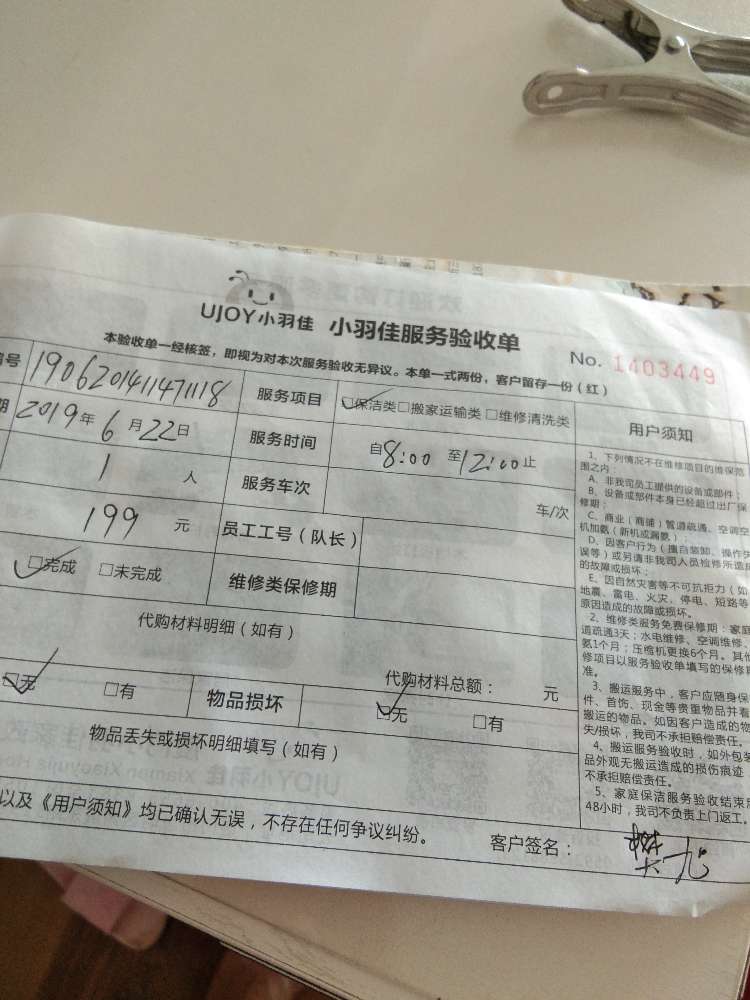 UJOY小羽佳 小羽佳服务验收单
No. 1403449
本验收单一经核签，即视为对本次服务验收无异议。本单一式两份，客户留存一份（红）
编号 190620141147118 服务项目 ☑保洁类□搬家运输类□维修清洗类
期 2019年6月22日 服务时间 自8:00至12:00止
1人 服务车次 车/次
199元 员工工号（队长）
☑完成 □未完成 维修类保修期
代购材料明细（如有）
代购材料总额： 元
☑无 □有 物品损坏 ☑无 □有
物品丢失或损坏明细填写（如有）
以及《用户须知》均已确认无误，不存在任何争议纠纷。
客户签名：
用户须知
1、下列情况不在维修项目的维保范
围之内：
A、非我司员工提供的设备或部件；
B、设备或部件本身已经超过出厂保
修期；
C、商业（商铺）管道疏通、空调空
机加氨（新机或漏氨）；
D、因客户行为（擅自装卸、操作失
误等）或另请非我司人员检修所造成
的故障或损坏；
E、因自然灾害等不可抗拒力（如
地震、雷电、火灾、停电、短路等
原因造成的故障或损坏。
2、维修类服务免费保修期：家庭
道疏通3天；水电维修、空调维修、
氨1个月；压缩机更换6个月。其他
修项目以服务验收单填写的保修期
准。
3、搬运服务中，客户应随身保
件、首饰、现金等贵重物品并看
搬运的物品。如因客户造成的物
失/损坏，我司不承担赔偿责任。
4、搬运服务验收时，如外包装
品外观无搬运造成的损伤痕迹
不承担赔偿责任。
5、家庭保洁服务验收结束后
48小时，我司不负责上门返工。